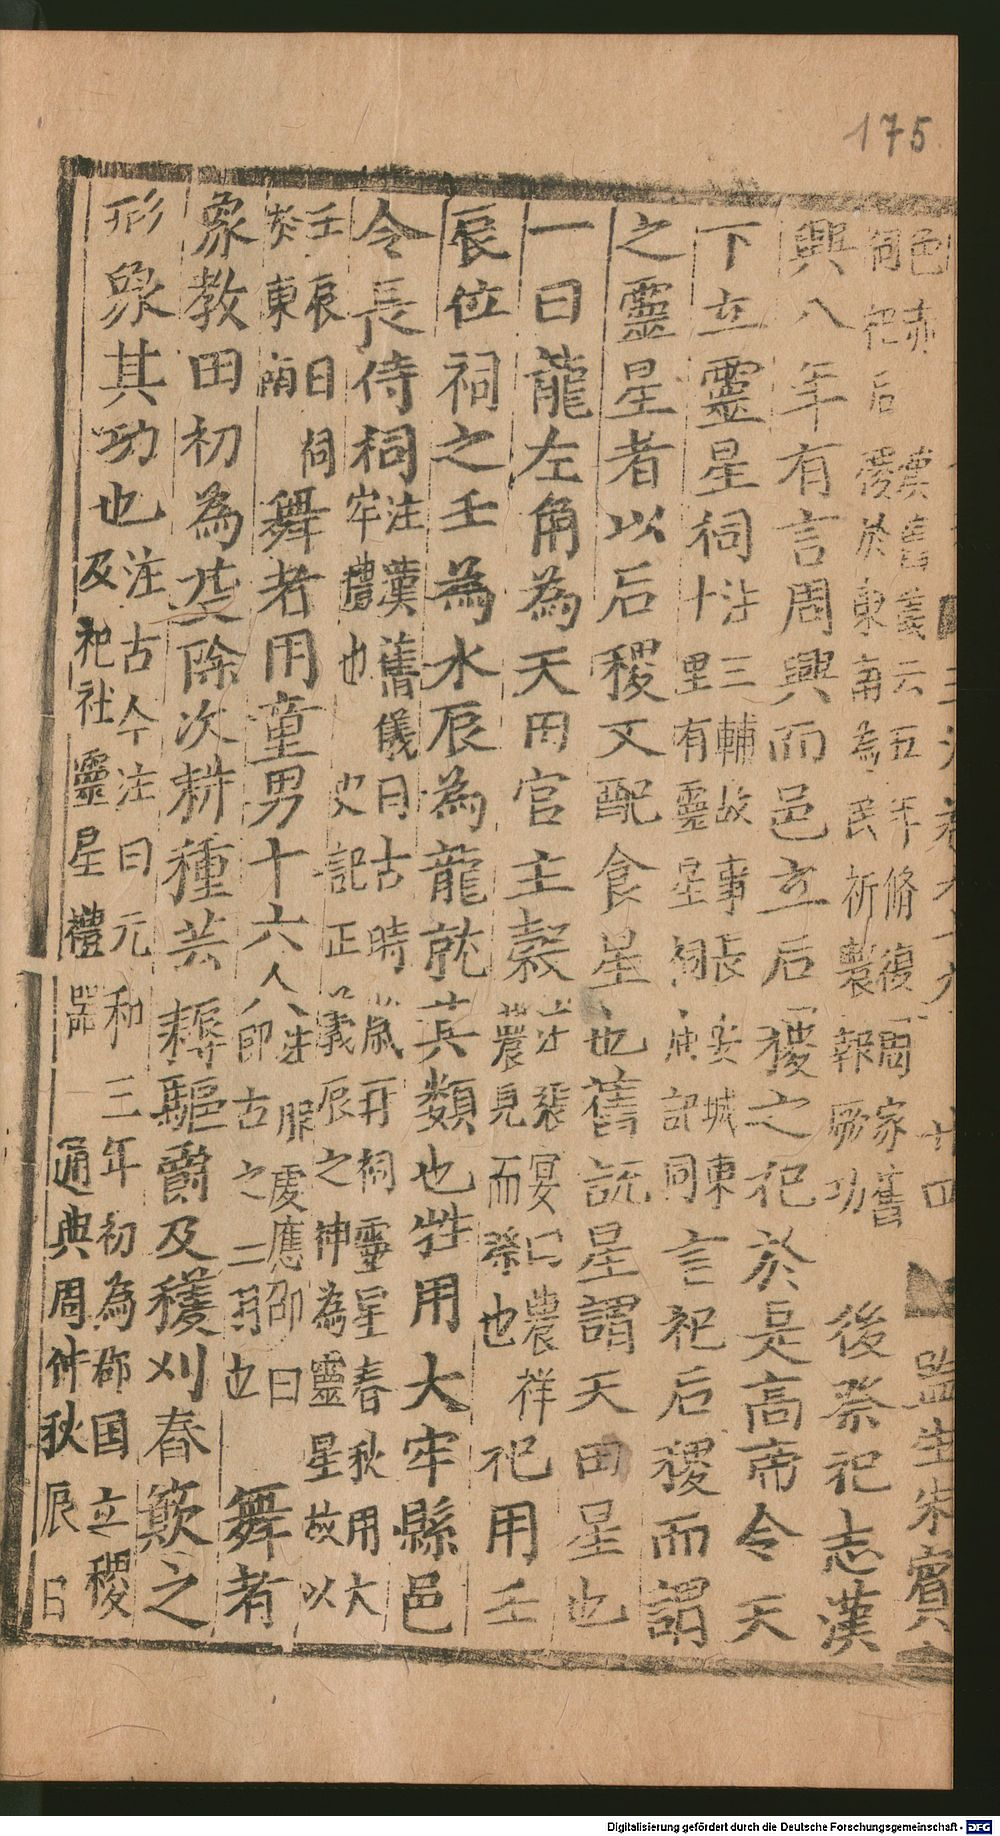 175
邑 赤 漢舊儀云五年脩復周家舊
祠祀后稷於東南為民祈農報厥功
後祭祀志漢
興八年有言周興而邑立后稷之祀於是高帝令天
下立靈星祠
注三輔故事長安城東
十里有靈星祠
記同言祀后稷而謂
之靈星者以后稷又配食星也舊說星謂天田星也
一曰龍左角為天田官主穀
農祥
農見而祭也
祀用壬
辰位祠之壬為水辰為龍就其類也牲用大牢縣邑
令長侍祠
注漢舊儀曰古時歲再祠靈星春秋用大
牢農也
史記正義辰之神為靈星故以
壬辰日祠
於東南
舞者用童男十六人
注服虔應邵曰
即古之二羽也
舞者
象教田初為芟除次耕種芸耨驅爵及穫刈舂簸之
形象其功也
注古今注曰元和三年初為郡国立稷
及祀社靈星禮器
通典周仲秋辰日
監生朱賓
Digitalisierung gefördert durch die Deutsche Forschungsgemeinschaft - DFG